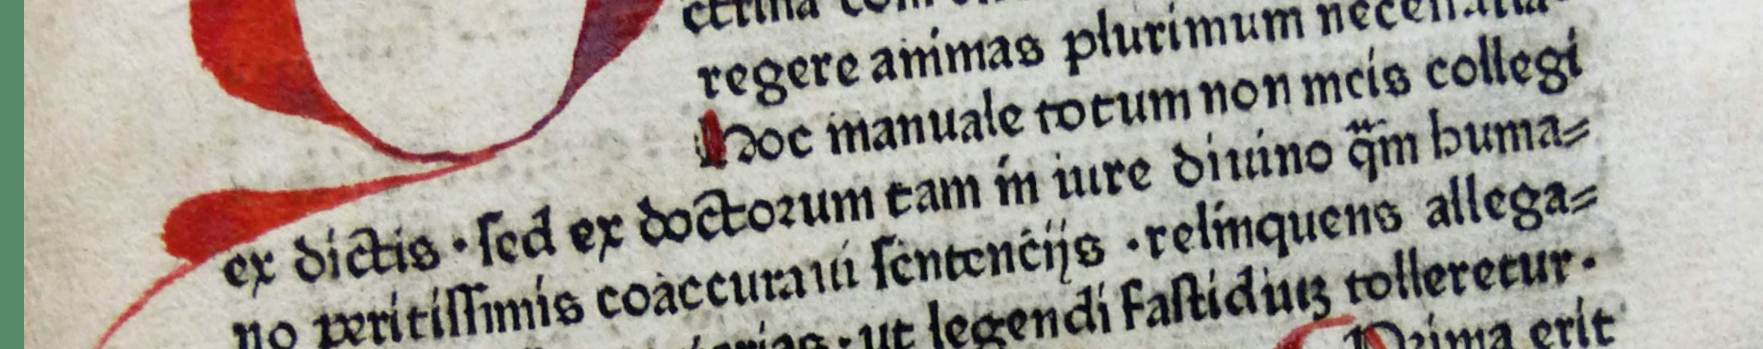 regere animas plurimum
Hoc manuale totum non meis collegi
ex dictis · sed ex doctorum tam in iure diuino q̃m huma⸗
no peritissimis coaccuraui sentencijs · relinquens allega⸗
ut legendi fastidiuꝫ tolleretur ·
Prima erit